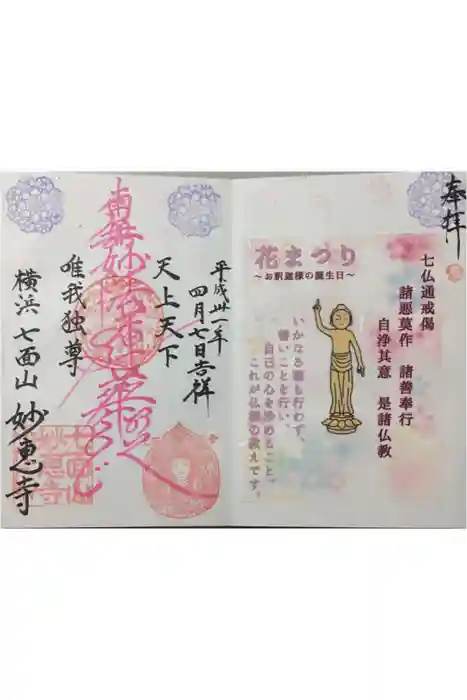 奉拝
七仏通戒偈
諸悪莫作 諸善奉行
自浄其意 是諸仏教
花まつり
～お釈迦様の誕生日～
いかなる悪も行わず、
善いことを行い、
自己の心を浄めること、
これが仏様の教えです。
平成卅一年
四月七日吉祥
天上天下
南無妙法蓮華経
唯我独尊
横浜 七面山 妙恵寺